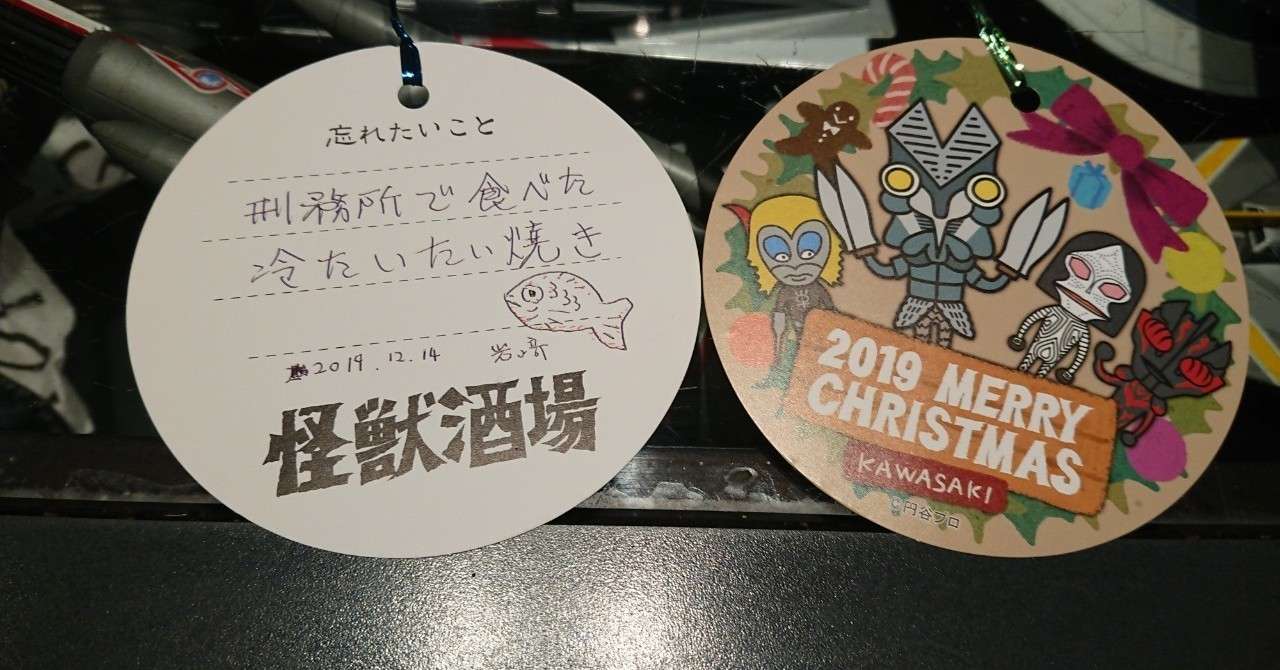 忘れたいこと
刑務所で食べた
冷たいたい焼き
2019.12.14
怪獣酒場
2019 MERRY
CHRISTMAS
KAWASAKI
©円谷プロ